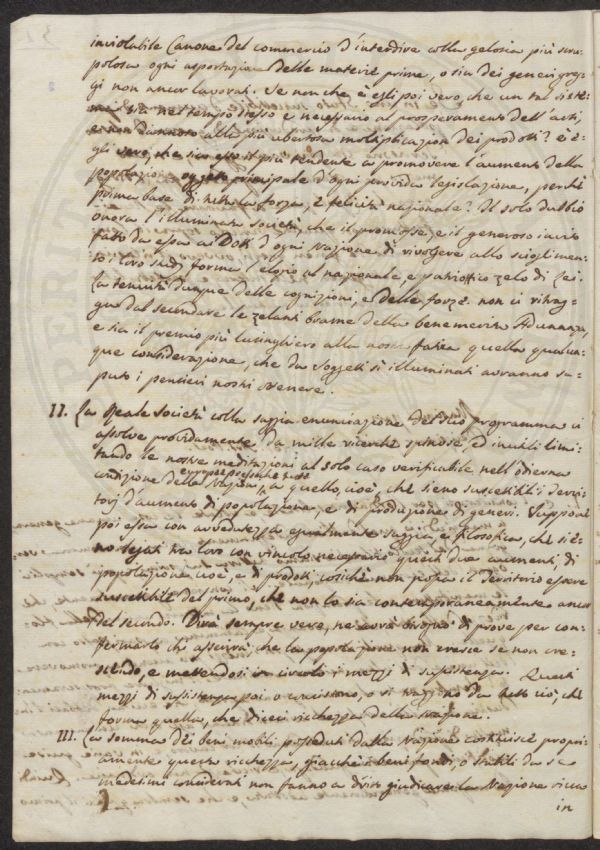 inviolabile Canone del commercio d'interdire colla gelosia più scru-
polosa ogni asportazione delle materie prime, o sia dei generi greg-
gi non ancor lavorati. Se non che è egli poi vero che un tal siste-
ma sia nel tempo stesso e necessario al prosperamento dell'arti,
e non dannoso alla più ubertosa moltiplicazion dei prodotti? è e-
gli vero, che sia esso il più tendente a promovere l'aumento della
popolazione oggetto principale d'ogni provida legislazione, perchè
prima base di tutta la forza, e felicità nazionale? Il solo dubbio
onora l'illuminata società, che il promosse, e il generoso invito
fatto da essa ai Dotti d'ogni Nazione di rivolgere allo scioglimen-
to i loro studj forma l'elogio al nazionale, e patriottico zelo di lei.
La tenuità dunque delle cognizioni, e delle forze non ci ritrag-
ga dal secondare le zelanti brame della benemerita Adunanza,
e sia il premio più lusinghiero alla nostra fatica quella qualun-
que considerazione, che da Soggetti sì illuminati avranno sa-
puto i pensieri nostri ottenere.
II. La Reale Società colla saggia enunciazione del suo programma ci
assolve providamente da mille ricerche spinose, ed inutili limi-
tando le nostre meditazioni al solo caso verificabile nell'odierna
europee pressochè tutte
condizione delle Nazioni, a quello, cioè, che sieno suscettibili i territ-
torj d'aumento di popolazione, e di produzione di generi. Suppone
poi essa con avvedutezza egualmente saggia, e filosofica, che sie-
no legati tra loro con vincolo necessario questi due aumenti di
popolazione cioè, e di prodotti, cosichè non possa il Territorio essere
suscettibile del primo, che non lo sia contemporaneamente ancor
del secondo. Dirà sempre vero, nè avrà bisogno di prove per con-
fermarlo chi asserirà che la popolazione non cresce se non cre-
scendo, e mettendosi in circolo i mezzi di sussistenza. Questi
mezzi di sussistenza poi o crescono, o si traggono da tutto ciò, che
forma quella, che dicesi ricchezza della Nazione.
III. La somma dei beni mobili posseduti dalla Nazione costituisce propri-
amente questa ricchezza, giacchè i beni fondi, o stabili da se
medesimi considerati non fanno a dritto giudicare la Nazione ricca
in